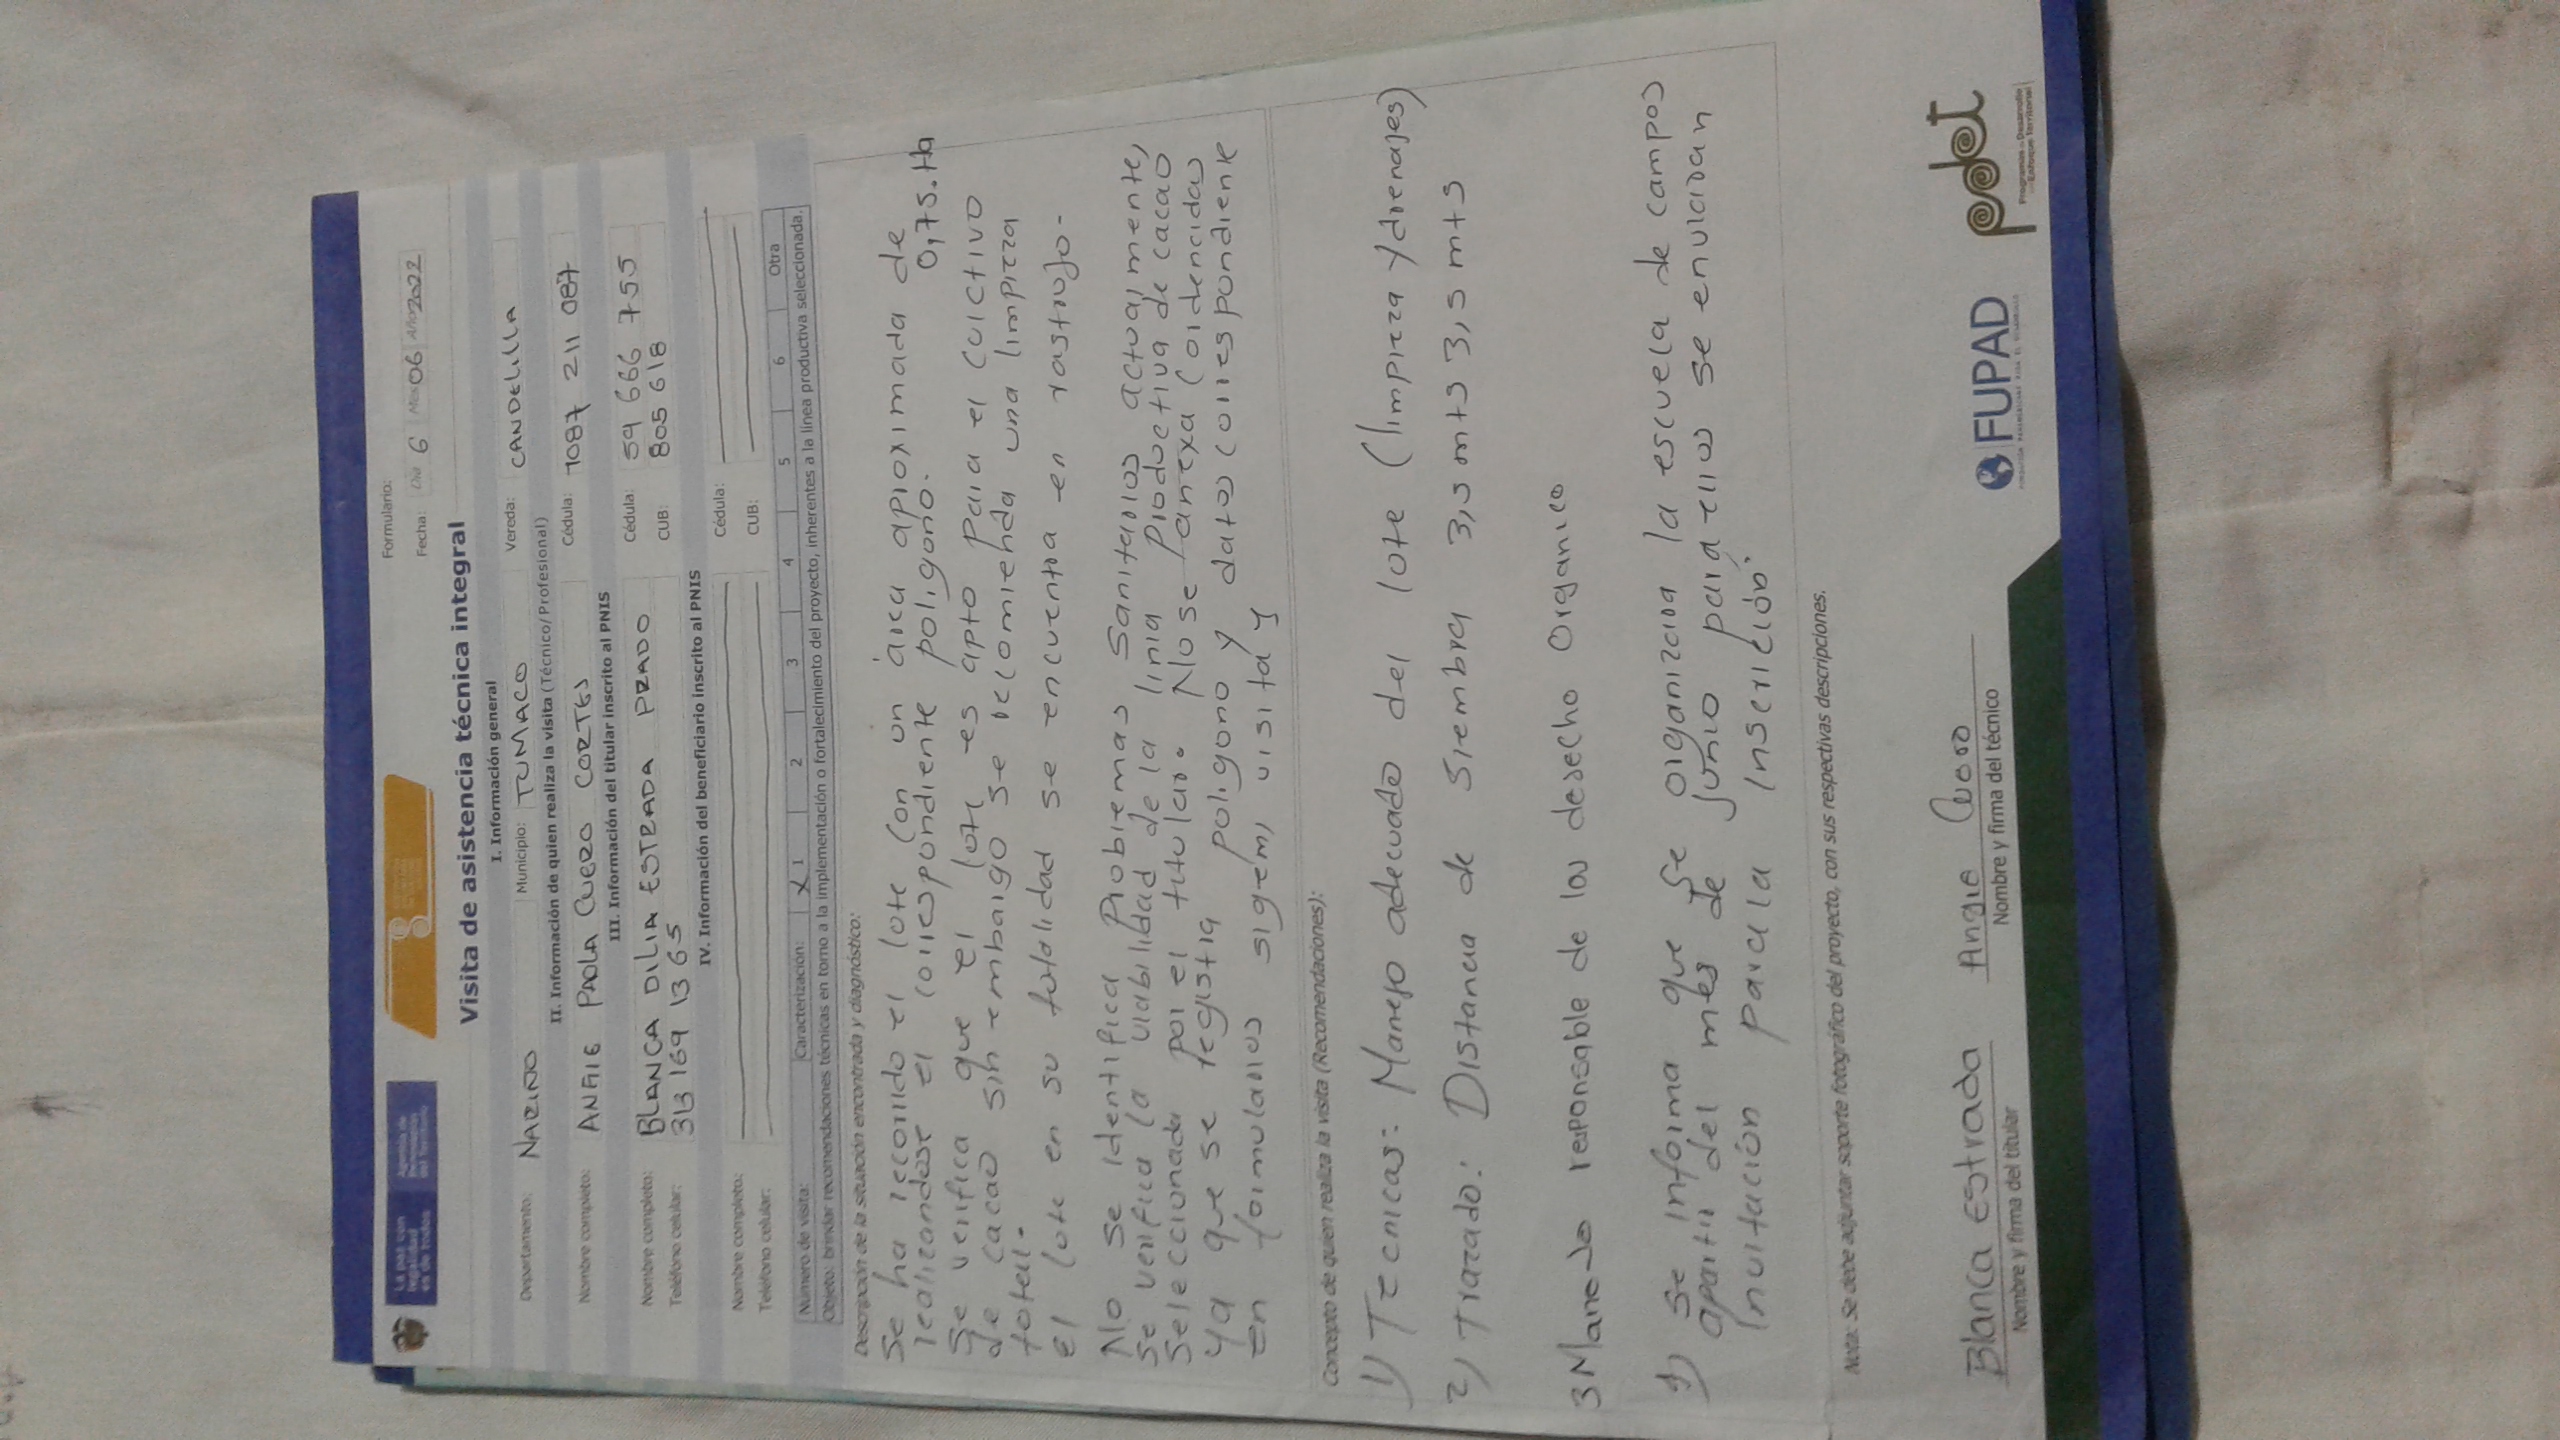 La paz con legalidad es de todos
Agencia de Renovación del Territorio
Formulario:
Fecha: Día 6 Mes 06 Año 2022
Visita de asistencia técnica integral
I. Información general
Departamento: NARIÑO Municipio: TUMACO Vereda: CANDELILLA
II. Información de quien realiza la visita (Técnico/Profesional)
Nombre completo: ANGIE PAOLA CUERO CORTES Cédula: 1087 211 087
III. Información del titular inscrito al PNIS
Nombre completo: BLANCA DILIA ESTRADA PRADO Cédula: 59 666 755
Teléfono celular: 313 169 13 65 CUB: 805 618
IV. Información del beneficiario inscrito al PNIS
Nombre completo: Cédula:
Teléfono celular: CUB:
Número de visita: Caracterización: X 1 2 3 4 5 6 Otra
Objeto: brindar recomendaciones técnicas en torno a la implementación o fortalecimiento del proyecto, inherentes a la línea productiva seleccionada.
Descripción de la situación encontrada y diagnóstico:
Se ha recorrido el lote con un área aproximada de
realizandose el correspondiente poligono. 0,75.Ha
Se verifica que el lote es apto para el cultivo
de cacao sin embargo se recomienda una limpieza
total.
el lote en su totalidad se encuentra en rastrojo.
No se identifica Problemas Sanitarios actualmente,
Se verifica la viabilidad de la linia Productiva de cacao
Seleccionada por el titular. No se anexa coordencidas
ya que se registra poligono y datos correspondiente
en formularios sigem, visita y
Concepto de quien realiza la visita (Recomendaciones):
1) Tecnicas: Manejo adecuado del lote (limpieza y drenajes)
2) Trazado: Distancia de Siembra 3,5 mts 3,5 mts
3 Manejo responsable de los desecho Organico
4) Se informa que se organizara la escuela de campos
apartir del mes de junio para ellos se enviaran
Invitación para la Inscrición.
Nota: Se debe adjuntar soporte fotográfico del proyecto, con sus respectivas descripciones.
Blanca Estrada Angie Cuero
Nombre y firma del titular Nombre y firma del técnico
FUPAD
pdet
Programas de Desarrollo con Enfoque Territorial